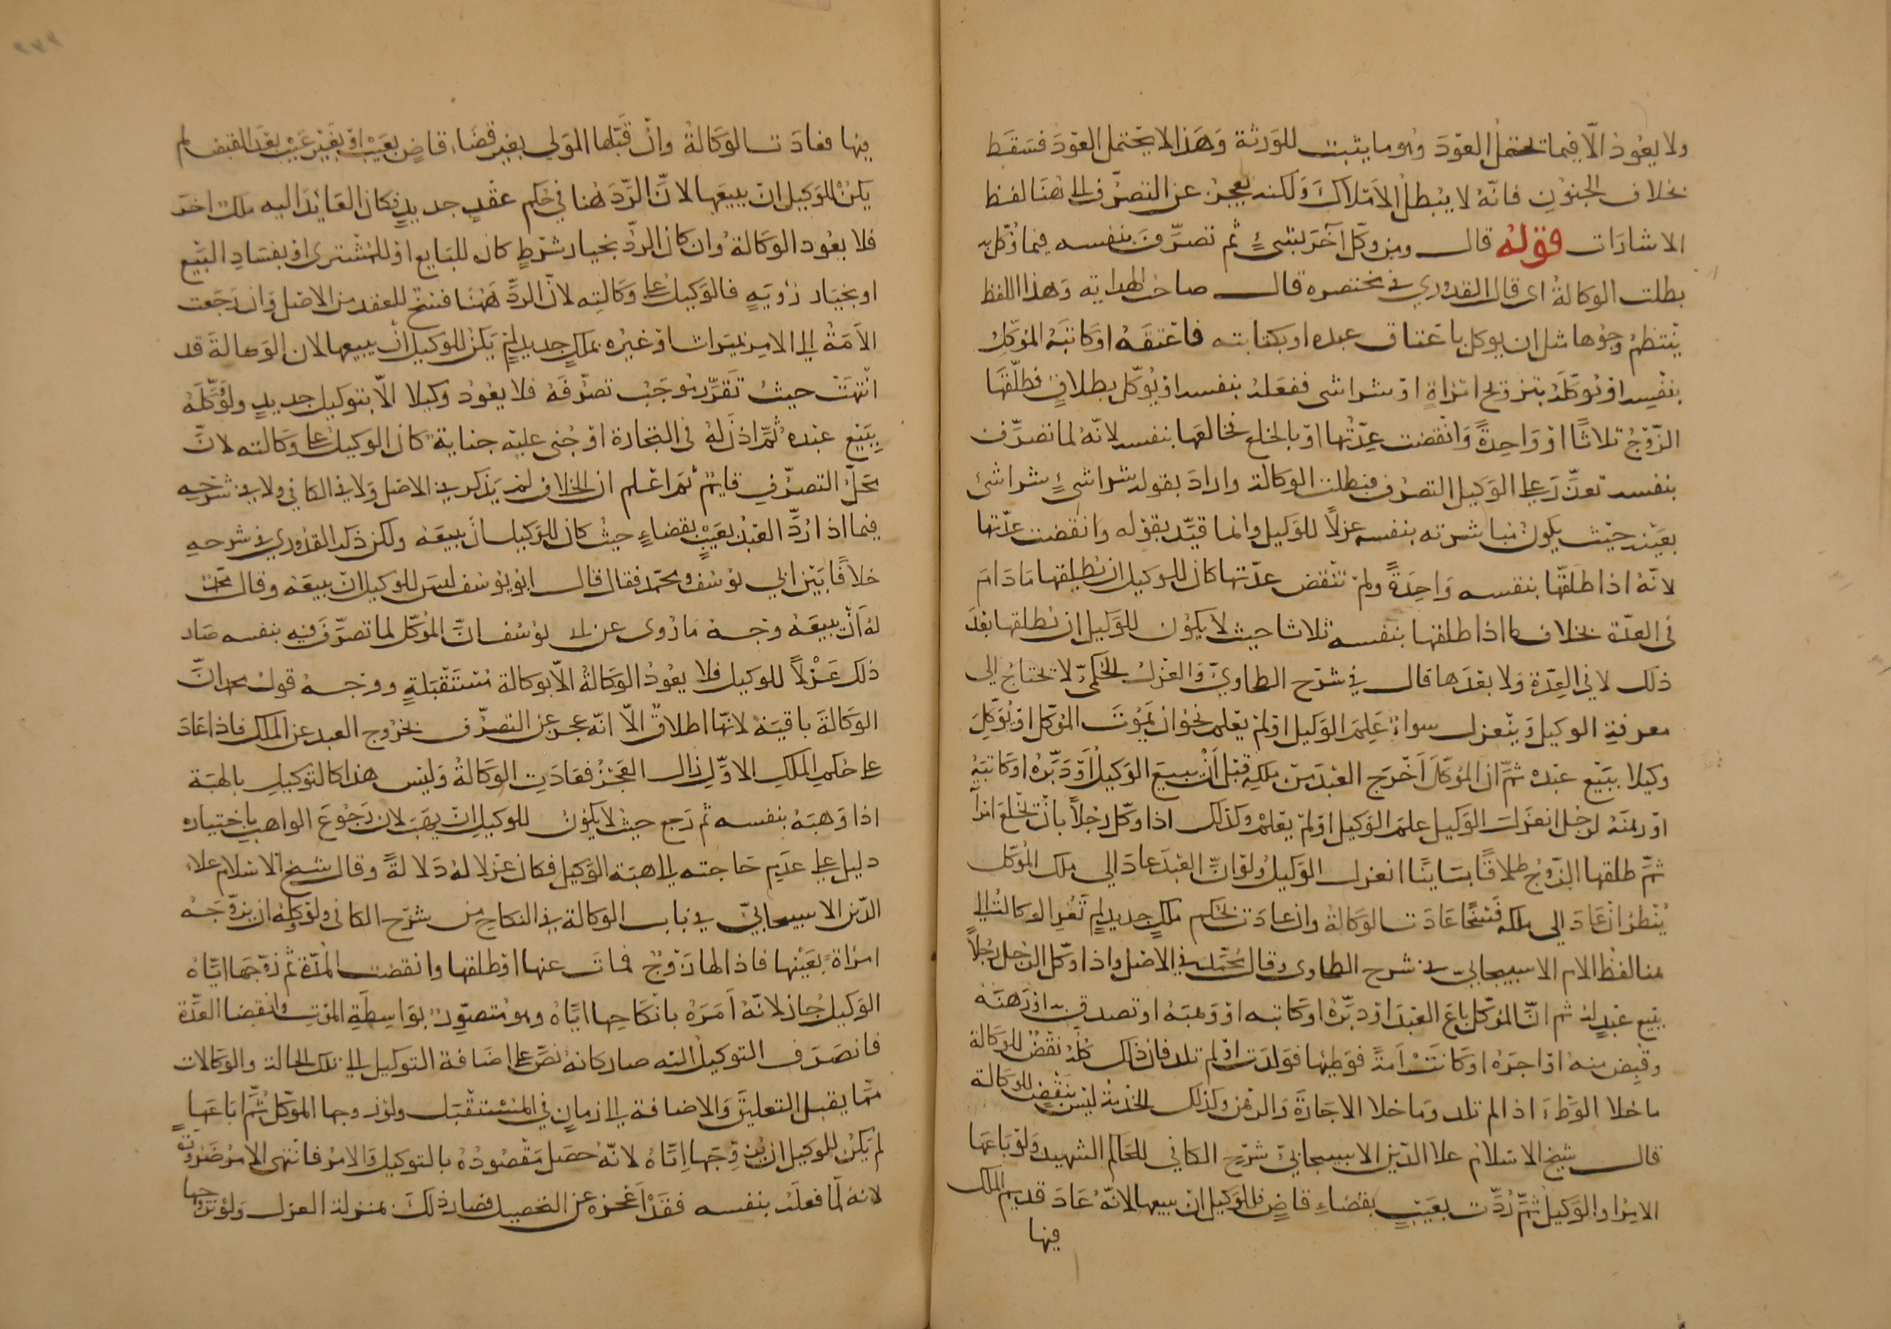 ولا يعود الا فيما تحتمل العود وهو ما يثبت للورثة وهذا لا يحتمل العود فسقط
بخلاف الجنون فانه لا يبطل الاملاك ولكنه يعجز عن التصرف الى هنا لفظ
الاشارات قوله قال ومن وكل آخر بشيء ثم تصرف بنفسه فيما وكل به
بطلت الوكالة اى قال القدوري في مختصره قال صاحب الهداية وهذا اللفظ
ينتظم وجوها مثل ان يوكل باعتاق عبده او بكتابته فاعتقه او كاتبه الموكل
بنفسه او يوكله بتزويج امراة او بشراشى ففعله بنفسه او يوكل بطلاق فطلقها
الزوج ثلاثا او واحدة وانقضت عدتها او بالخلع فخالعها بنفسه لانه لما تصرف
بنفسه تعذر على الوكيل التصرف فبطلت الوكالة واراد بقوله شراشيء شراشئ
بعينه حيث يكون مباشرته بنفسه عزلا للوكيل وانما قيد بقوله وانقضت عدتها
لانه اذا طلقها بنفسه واحدة ولم تنقض عدتها كان للوكيل ان يطلقها ما دام
في العدة بخلاف ما اذا طلقها بنفسه ثلاثا حيث لا يكون للوكيل ان يطلقها بعد
ذلك لا في العدة ولا بعدها قال في شرح الطحاوي والعزل الحكمي لا يحتاج الى
معرفة الوكيل وينعزل سواء علم الوكيل او لم يعلم نحو ان يموت الموكل او يوكل
وكيلا ببيع عبده ثم ان الموكل اخرج العبد من ملكه قبل ان يبيع الوكيل او دبره او كاتبه
او رهنه لرجل انعزل الوكيل علم الوكيل او لم يعلم وكذلك اذا وكل رجلا بان تخلع امراته
ثم طلقها الزوج طلاقا بائنا انعزل الوكيل ولو ان العبد عاد الى ملك الموكل
ينظر ان عاد الى ملكه فسخا عادت الوكالة وان عاد بحكم ملك جديد لم تعد الوكالة الى
هنا لفظ الامام الاسبيجابي في شرح الطحاوى وقال محمد في الاصل واذا وكل الرجل رجلا
ببيع عبد له ثم ان الموكل باع العبد او دبره او كاتبه او وهبه او تصدق به او رهنه
وقبض منه او اجره او كانت امة فوطئها فولدت او لم تلد فان ذلك كله نقض للوكالة
ما خلا الوطء اذا لم تلد وما خلا الاجارة والرهن وكذلك الخدمة ليس بنقض للوكالة
قال شيخ الاسلام علا الدين الاسبيجابي في شرح الكافي للحاكم الشهيد ولو باعها
الامر او الوكيل ثم ردت بعيب بقضاء قاض فللوكيل ان يبيعها لانه عاد قديم الملك
فيها
فيها فعادت الوكالة وان قبلها المولى بغير قضاء قاض بعيب او بغير عيب بعد القبض لم
يكن للوكيل ان يبيعها لان الرد هنا في حكم عقد جديد فكان العايد اليه ملك اخر
فلا يعود الوكالة وان كان الرد بخيار شرط كان للبايع او للمشترى او بفساد البيع
او بخيار رؤية فالوكيل على وكالته لان الرد ههنا فسخ للعقد من الاصل وان رجعت
الامة الى الامر بميراث او غيره بملك جديد لم يكن للوكيل ان يبيعها لان الوكالة قد
انتهت حيث تقرر بموجب تصرفه فلا يعود وكيلا الا بتوكيل جديد ولو وكله
ببيع عبده ثم اذن له في التجارة او جنى عليه جناية كان الوكيل على وكالته لان
محل التصرف قايم ثم اعلم ان الخلاف لم يذكر في الاصل ولا في الكافي ولا في شرحه
فيما اذا رد العبد بعيب بقضاء حيث كان للوكيل ان يبيعه ولكن ذكر القدوري في شرحه
خلافا بين ابي يوسف ومحمد فقال قال ابو يوسف ليس للوكيل ان يبيعه وقال محمد
له ان يبيعه وجه ما روى عن ابي يوسف ان الموكل لما تصرف فيه بنفسه صار
ذلك عزلا للوكيل فلا يعود الوكالة الا بوكالة مستقبلة ووجه قول محمد ان
الوكالة باقية لانها اطلاق الا انه عجز عن التصرف بخروج العبد عن الملك فاذا عاد
على حكم الملك الاول زال العجز فعادت الوكالة وليس هذا كالتوكيل بالهبة
اذا وهبه بنفسه ثم رجع حيث لا يكون للوكيل ان يهب لان رجوع الواهب باختياره
دليل على عدم حاجته الى هبة الوكيل فكان عزلا له دلالة وقال شيخ الاسلام علاء
الدين الاسبيجابي في باب الوكالة في النكاح من شرح الكافي ولو وكله ان يزوجه
امراة بعينها فاذا لها زوج فمات عنها او طلقها وانقضت المدة ثم زوجها اياه
الوكيل جاز لانه امره بانكاحها اياه وهو متصور بواسطة الموت وانقضا العدة
فانصرف التوكيل اليه صار كانه نص على اضافة التوكيل الى تلك الحالة والوكالات
مما يقبل التعليق والاضافة الى زمان في المستقبل ولو تزوجها الموكل ثم اباعها
لم يكن للوكيل ان يزوجها اياه لانه حصل مقصوده بالتوكيل والامر فانتهى الامر ضرورة
لانه لما فعله بنفسه فقد اعجزه عن التحصيل فصار ذلك بمنزلة العزل ولو تزوجها